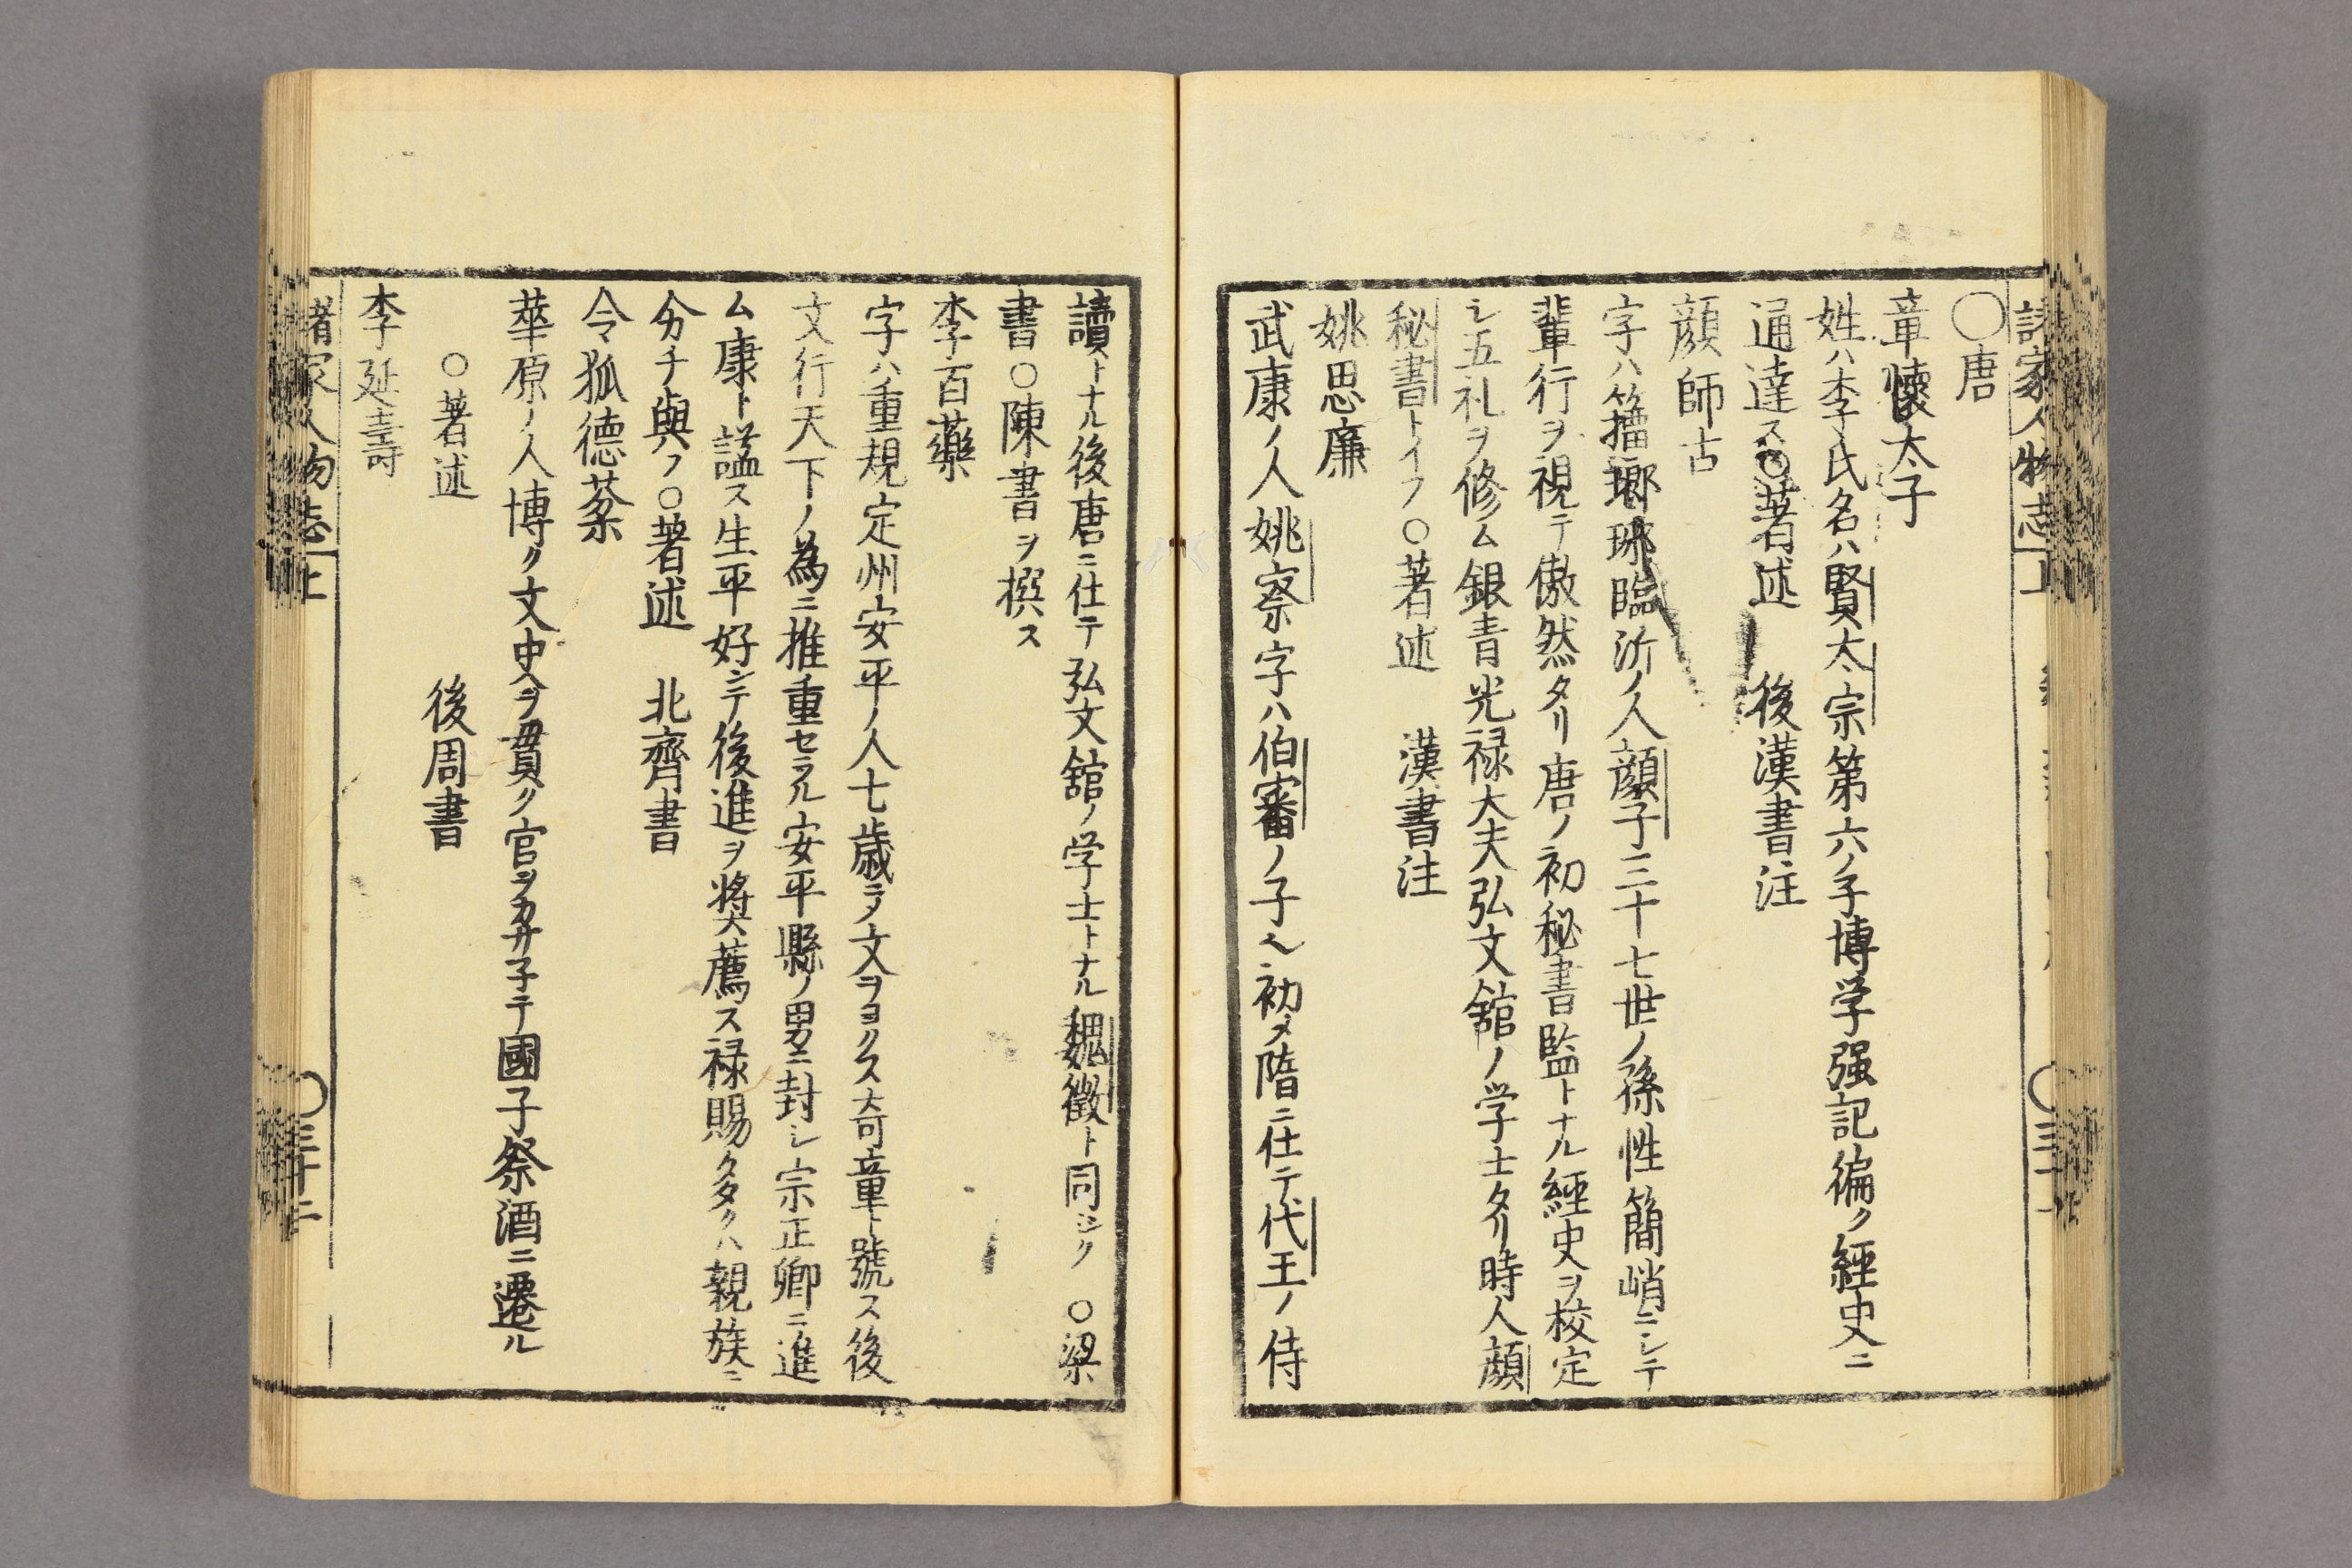 諸家人物志 上
〇唐
章懐太子
姓ハ李氏名ハ賢太宗第六ノ子博学强記徧ク經史ニ
通達ス〇著述 後漢書注
顔師古
字ハ籀瑯琊臨沂ノ人顔子三十七世ノ孫性簡峭ニシテ
輩行ヲ視テ傲然タリ唐ノ初秘書監トナル經史ヲ校定
シ五礼ヲ修ム銀青光禄大夫弘文舘ノ学士タリ時人顔
秘書トイフ〇著述 漢書注
姚思廉
武康ノ人姚察字ハ伯審ノ子ヘ初メ隋ニ仕テ代王ノ侍
讀トナル後唐ニ仕テ弘文舘ノ学士トナル魏徵ト同シク 〇梁
書〇陳書ヲ撰ス
李百藥
字ハ重規定州安平ノ人七歳ニノ文ヲヨクス奇童ト號ス後
文行天下ノ為ニ推重セラル安平縣ノ男ニ封シ宗正卿ニ進
ム康ト謚ス生平好ンテ後進ヲ奨薦ス禄賜多クハ親族ニ
分チ與フ〇著述 北齊書
令狐德棻
華原ノ人博ク文史ヲ貫ク官ヲカサ子テ國子祭酒ニ遷ル
〇著述 後周書
李延壽
諸家人物志 上 〇三十二